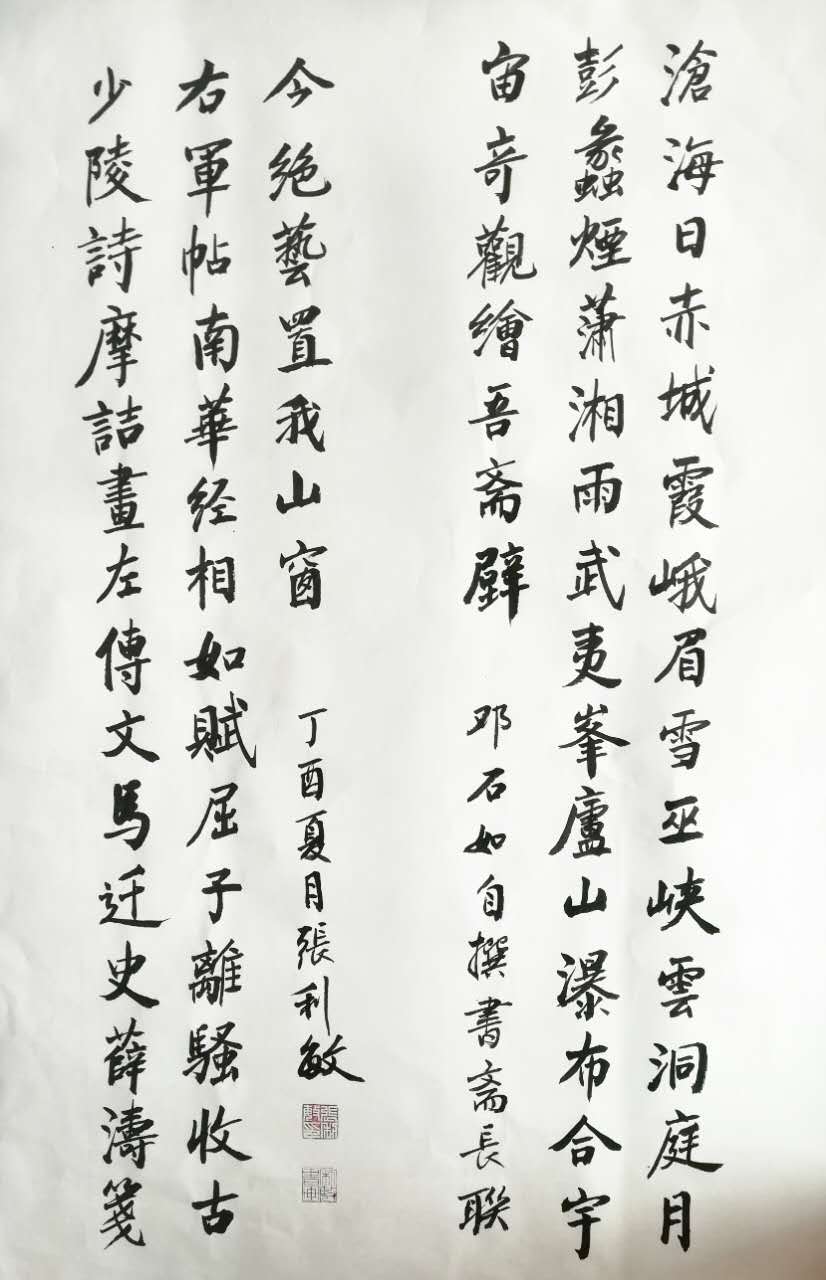 滄海日赤城霞峨眉雪巫峡雲洞庭月
彭蠡煙瀟湘雨武夷峯廬山瀑布合宇
宙奇觀繪吾斋壁
邓石如自撰書斋長聯
少陵詩摩詰畫左傳文馬迁史薛濤箋
右軍帖南華经相如賦屈子離騷收古
今絶藝置我山窗
丁酉夏月張利敏